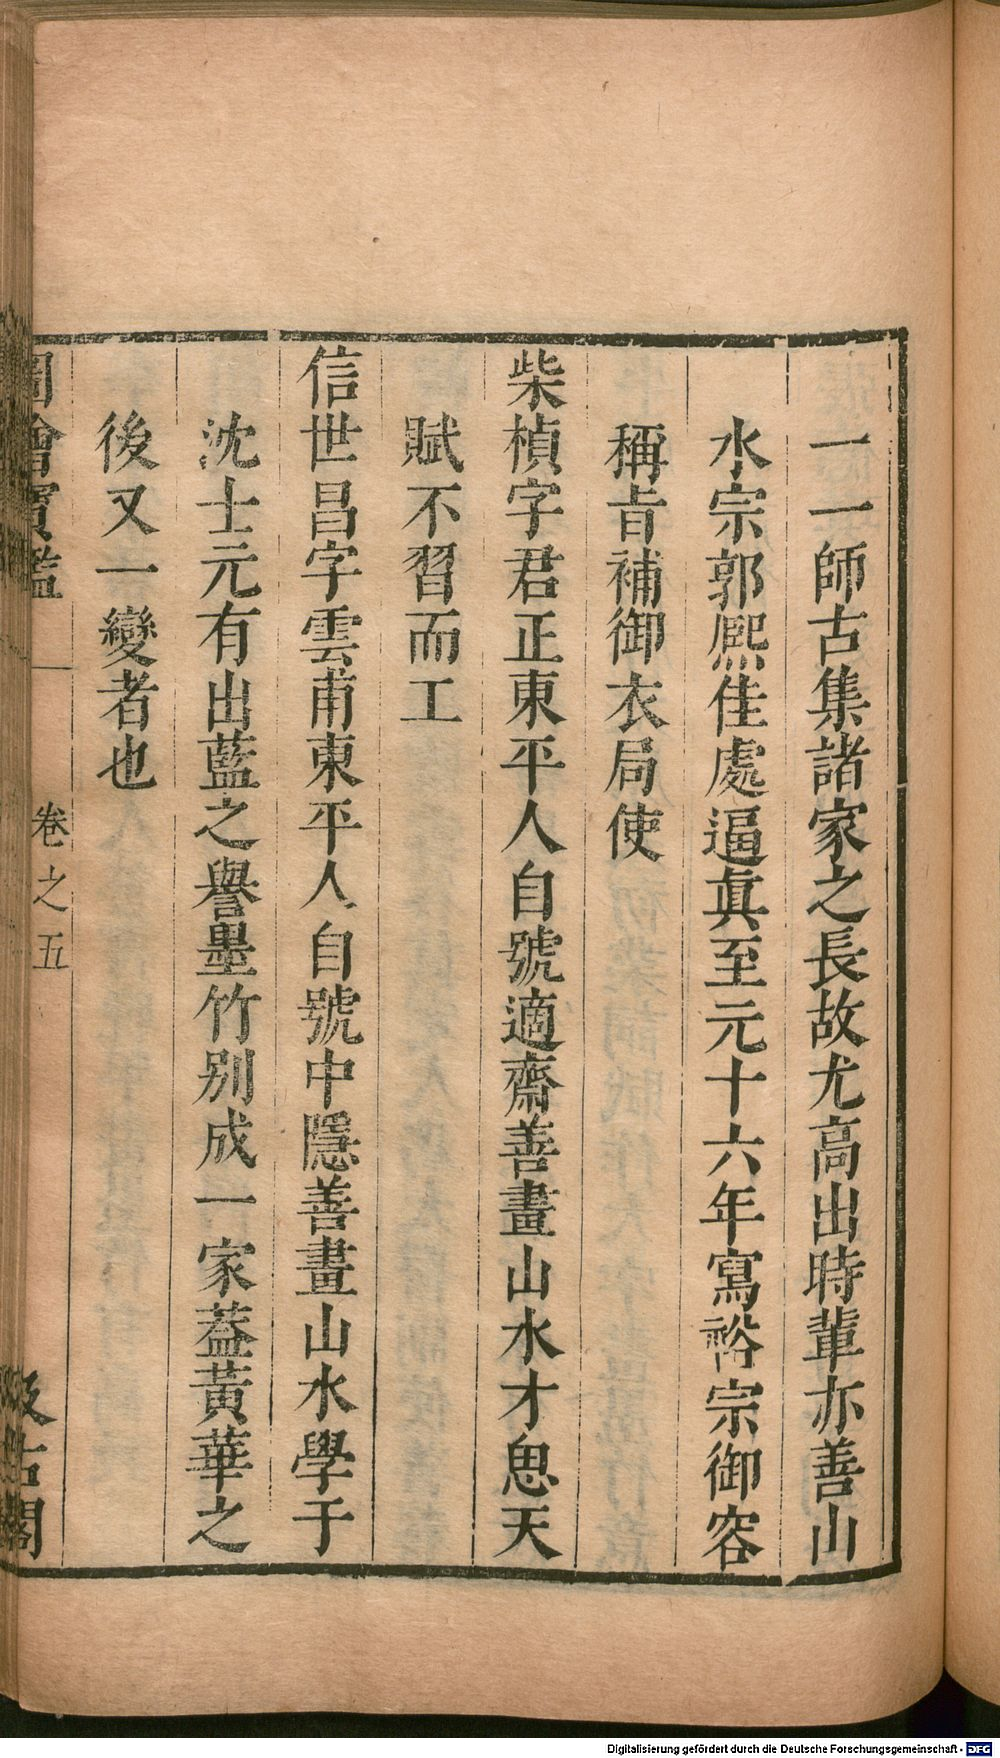 一一師古集諸家之長故尤高出時輩亦善山
水宗郭熈佳處逼眞至元十六年寫裕宗御容
稱旨補御衣局使
柴楨字君正東平人自號適齋善畫山水才思天
賦不習而工
信世昌字雲甫東平人自號中隱善畫山水學于
沈士元有出藍之譽墨竹别成一家葢黃華之
後又一變者也
圖繪寳鑑
卷之五
汲古閣
Digitalisierung gefördert durch die Deutsche Forschungsgemeinschaft - DFG